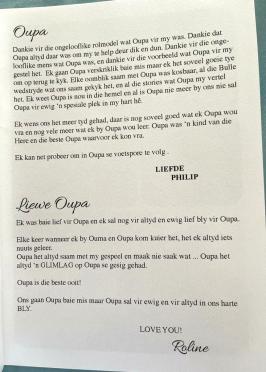 Oupa
Dankie vir die ongelooflike rolmodel wat Oupa vir my was. Dankie dat
Oupa altyd daar was om my te help deur dik en dun. Dankie vir die onge-
looflike mens wat Oupa was, en dankie vir die voorbeeld wat Oupa vir my
gestel het. Ek gaan Oupa verskriklik baie mis maar ek het soveel goeie tye
om op terug te kyk. Elke oomblik saam met Oupa was kosbaar, al die Bulle
wedstryde wat ons saam gekyk het, en al die stories wat Oupa my vertel
het. Ek weet Oupa is nou in die hemel en al is Oupa nie meer by ons nie sal
Oupa vir ewig 'n spesiale plek in my hart hê.
Ek wens ons het meer tyd gehad, daar is nog soveel goed wat ek Oupa wou
vra en nog vele meer wat ek by Oupa wou leer. Oupa was 'n kind van die
Here en die beste Oupa waarvoor ek kon vra.
Ek kan net probeer om in Oupa se voetspore te volg .
LIEFDE
PHILIP
Liewe Oupa
Ek was baie lief vir Oupa en ek sal nog vir altyd en ewig lief bly vir Oupa.
Elke keer wanneer ek by Ouma en Oupa kom kuier het, het ek altyd iets
nuuts geleer.
Oupa het altyd saam met my gespeel en maak nie saak wat ... Oupa het
altyd 'n GLIMLAG op Oupa se gesig gehad.
Oupa is die beste ooit!
Ons gaan Oupa baie mis maar Oupa sal vir ewig en vir altyd in ons harte
BLY.
LOVE YOU!
Roline